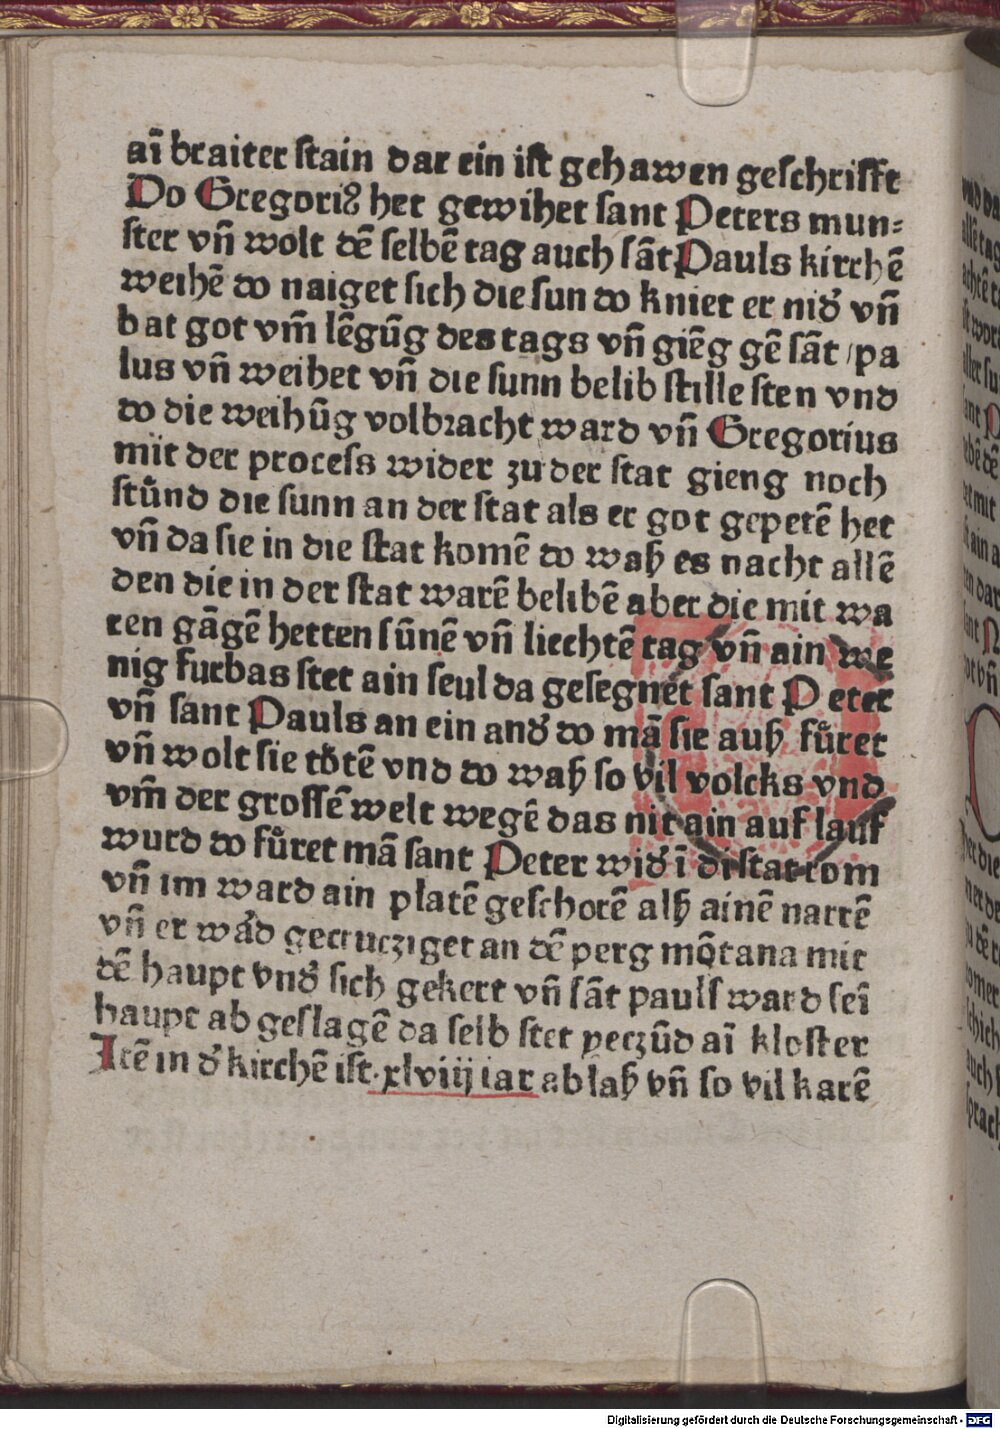 aī braiter stain dar ein ist gehawen geschrifft
Do Gregoriꝰ het gewihet sant Peters mun⸗
ster vn̄ wolt dē selbē tag auch sāt Pauls kirchē
weihē do naiget sich die sun do kniet er nid' vn̄
bat got vm̄ lēgūg des tags vn̄ giēg gē sāt pa
lus vn̄ weihet vn̄ die sunn belib stille sten vnd
do die weihūg volbracht ward vn̄ Gregorius
mit der process wider zu der stat gieng noch
stůnd die sunn an der stat als er got gepetē het
vn̄ da sie in die stat komē do waß es nacht allē
den die in der stat warē belibē aber die mit wa
ren gāgē hetten sūnē vn̄ liechtē tag vn̄ ain we
nig furbas stet ain seul da gesegnet sant Peter
vn̄ sant Pauls an ein and' do mā sie auß fůret
vn̄ wolt sie tötē vnd do waß so vil volcks vnd
vm̄ der grossē welt wegē das nit ain auf lauf
wurd do fůret mā sant Peter wid' ī di stat rom
vn̄ im ward ain platē geschorē alß ainē narrē
vn̄ er wa'd gecrucziget an dē perg mōtana mit
dē haupt vnd' sich gekert vn̄ sāt pauls ward seī
haupt ab geslagē da selb stet yeczūd aī kloster
Itē in d' kirchē ist ·xlviij iar ablaß vn̄ so vil karē
Digitalisierung gefördert durch die Deutsche Forschungsgemeinschaft - DFG